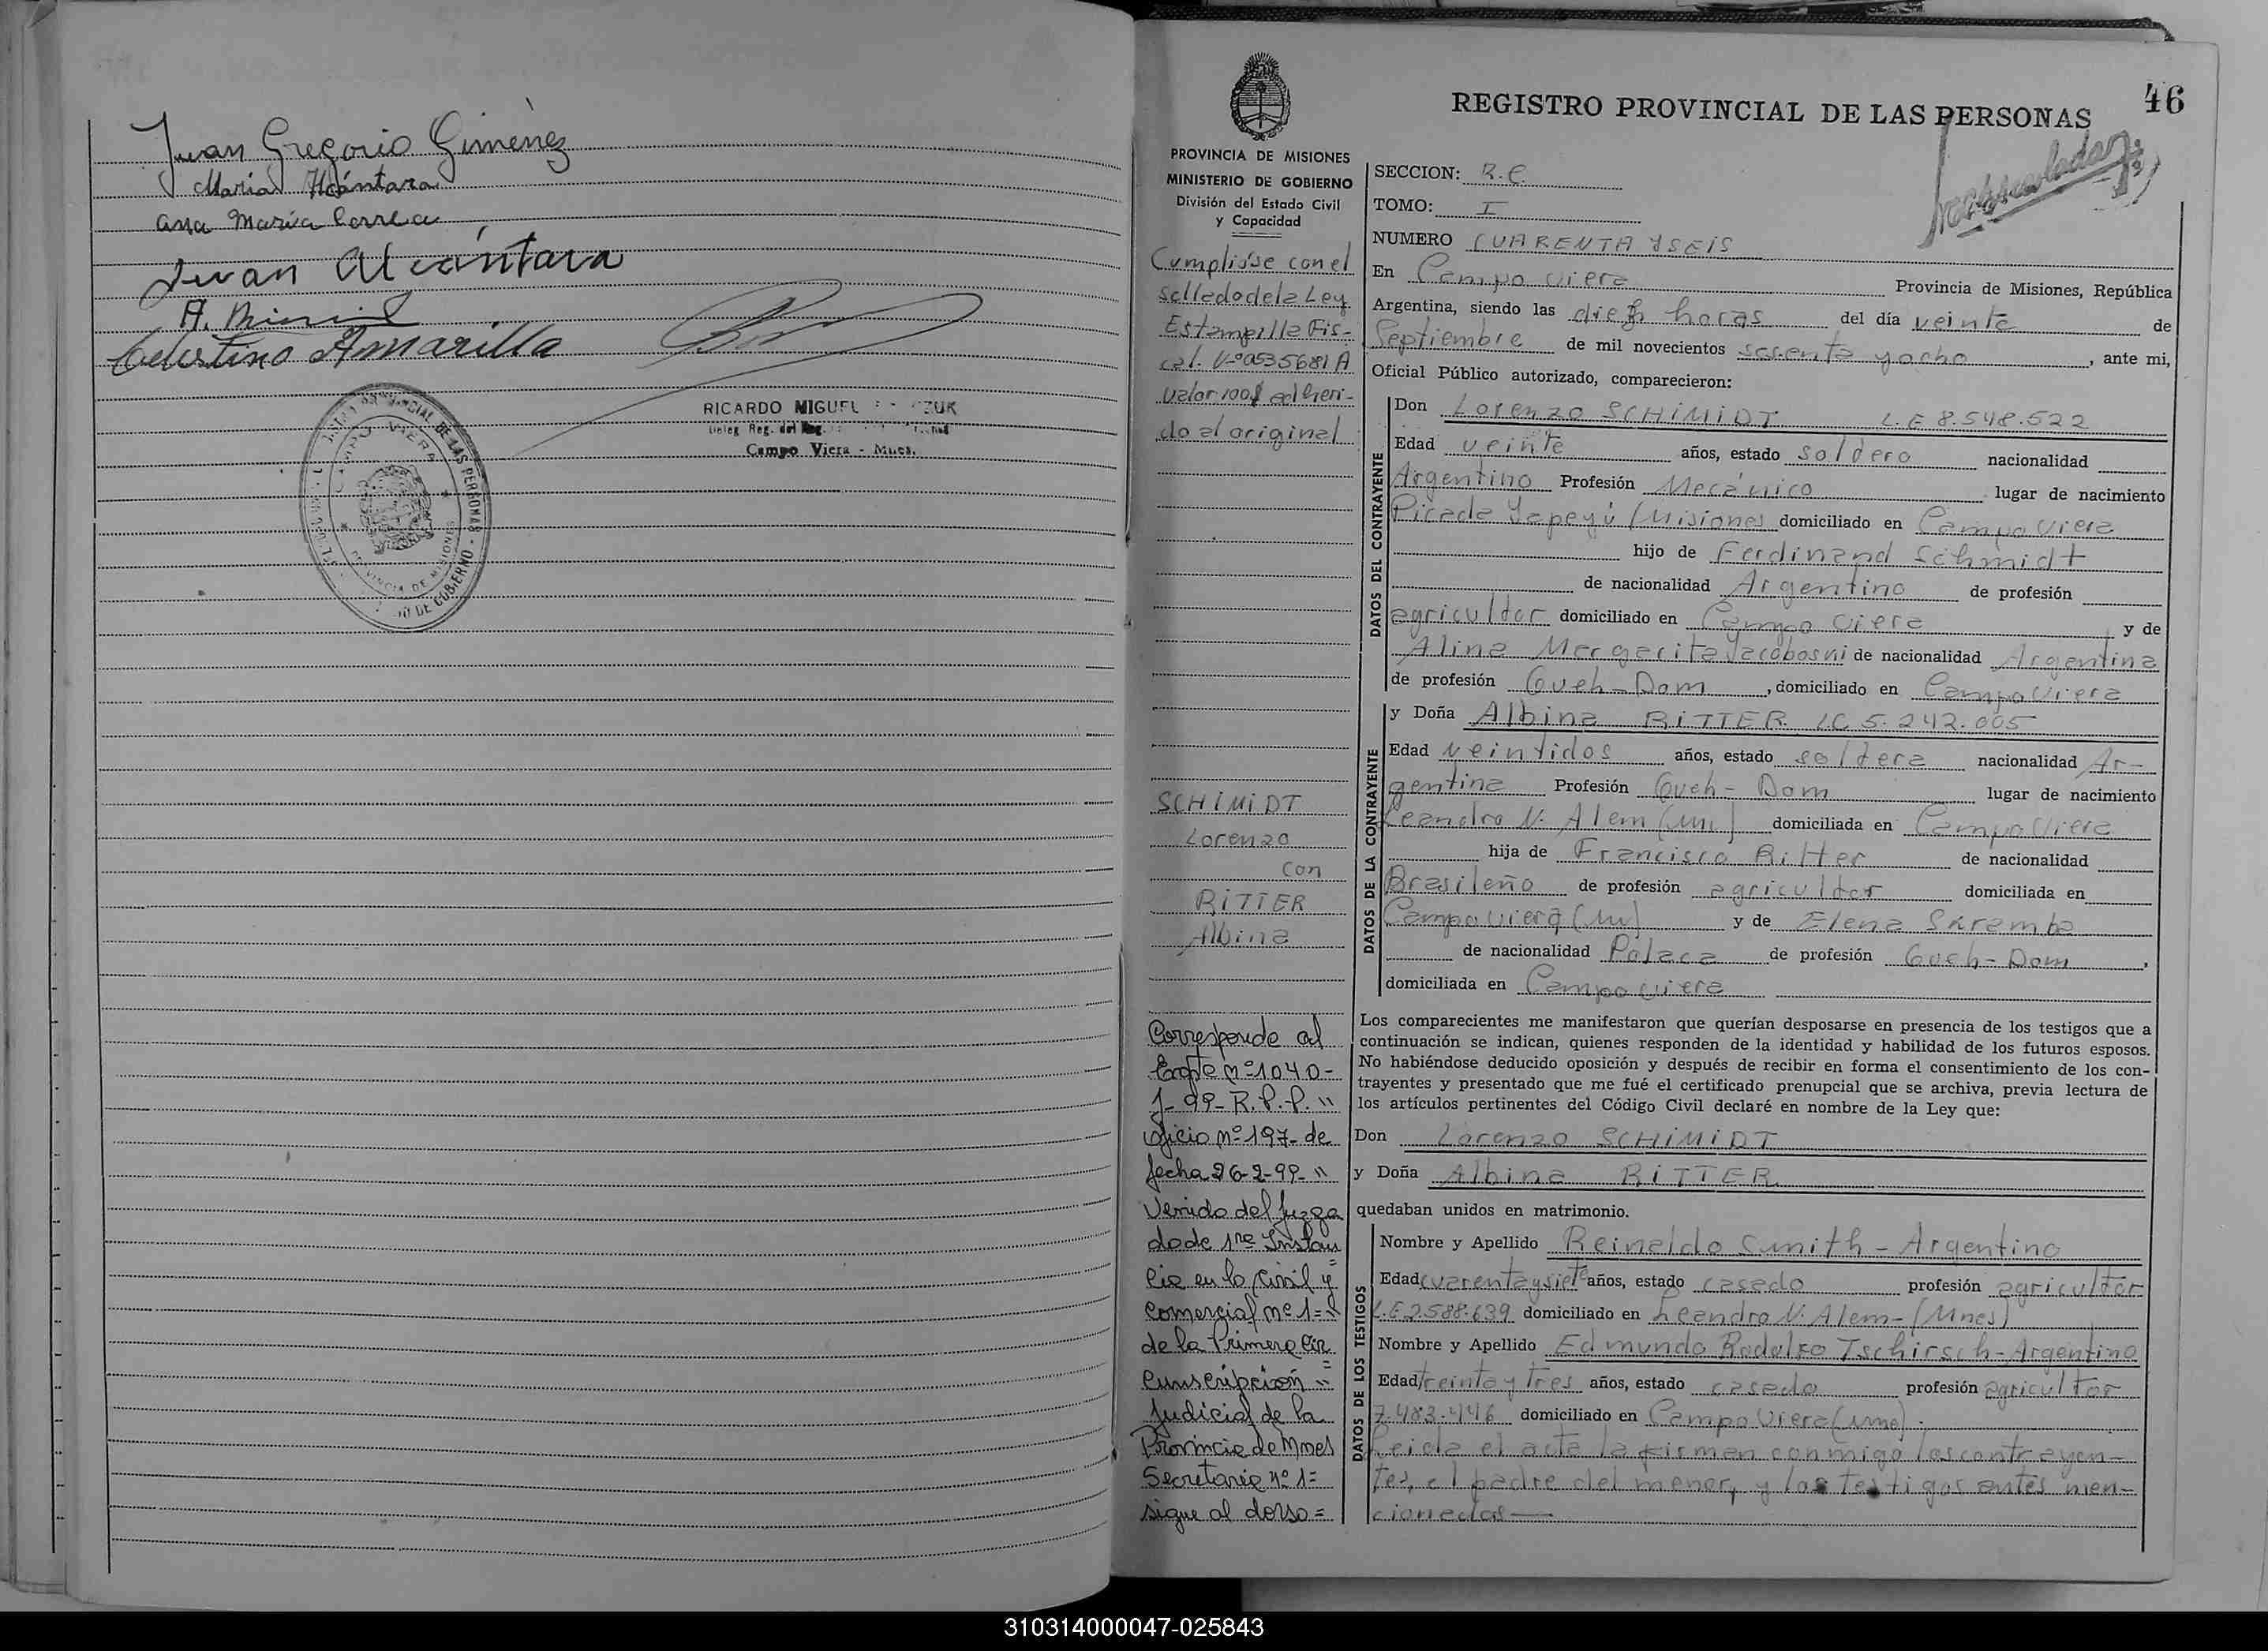 Juan Gregorio Giménez
Maria Alcántara
Ana María Correa
Juan Alcántara
Celestino Amarilla
RICARDO MIGUEL
Campo Viera - Mnes.
CAMPO VIERA
PROVINCIA DE MISIONES
46
REGISTRO PROVINCIAL DE LAS PERSONAS
PROVINCIA DE MISIONES
MINISTERIO DE GOBIERNO
División del Estado Civil
y Capacidad
Cumplióse con el
selladodela Ley
Estampilla Fis-
cal. Nº 0535681 A
valor 100$ adheri-
do al original
SCHIMIDT
Lorenzo
con
RITTER
Albina
Corresponde al
Expte nº 1040-
J- 99- R.P.P. "
oficio nº 197- de
fecha 26-2-99- "
Venido del Juzga
do de 1ra Instan
cia en lo Civil y
Comercial nº 1= "
de la Primera Cir
cunscripción "
Judicial de la
Provincia de Mnes
Secretaria nº 1=
sigue al dorso =
SECCION: R.C.
TOMO: I
NUMERO CUARENTA Y SEIS
En Campo Viera Provincia de Misiones, República
Argentina, siendo las diez horas del día veinte de
Septiembre de mil novecientos sesenta y ocho, ante mi,
Oficial Público autorizado, comparecieron:
DATOS DEL CONTRAYENTE
Don Lorenzo SCHIMIDT L.E 8.548.522
Edad veinte años, estado soltero nacionalidad
Argentino Profesión Mecánico lugar de nacimiento
Picada Yapeyú (Misiones) domiciliado en Campo Viera
hijo de Ferdinand Schmidt
de nacionalidad Argentino de profesión
agricultor domiciliado en Campo Viera y de
Alina Margarita Jacoboski de nacionalidad Argentina
de profesión Queh-Dom, domiciliado en Campo Viera
DATOS DE LA CONTRAYENTE
y Doña Albina RITTER LC 5.242.005
Edad veintidos años, estado soltera nacionalidad Ar-
gentina Profesión Queh-Dom lugar de nacimiento
Leandro N. Alem (Mnes) domiciliada en Campo Viera
hija de Francisco Ritter de nacionalidad
Brasileño de profesión agricultor domiciliada en
Campo Viera (Mn) y de Elena Skramba
de nacionalidad Polaca de profesión Queh-Dom,
domiciliada en Campo Viera
Los comparecientes me manifestaron que querían desposarse en presencia de los testigos que a
continuación se indican, quienes responden de la identidad y habilidad de los futuros esposos.
No habiéndose deducido oposición y después de recibir en forma el consentimiento de los con-
trayentes y presentado que me fué el certificado prenupcial que se archiva, previa lectura de
los artículos pertinentes del Código Civil declaré en nombre de la Ley que:
Don Lorenzo SCHIMIDT
y Doña Albina RITTER
quedaban unidos en matrimonio.
DATOS DE LOS TESTIGOS
Nombre y Apellido Reinaldo Smith - Argentino
Edad cuarentaysiete años, estado casado profesión agricultor
L.E 2.588.639 domiciliado en Leandro N. Alem-(Mnes)
Nombre y Apellido Edmundo Rodolfo Tschirsch-Argentino
Edad treinta y tres años, estado casado profesión agricultor
7.483.446 domiciliado en Campo Viera (Mne).
Leida el acta la firman conmigo los contrayen-
tes, el padre del menor, y los testigos antes men-
cionados
310314000047-025843